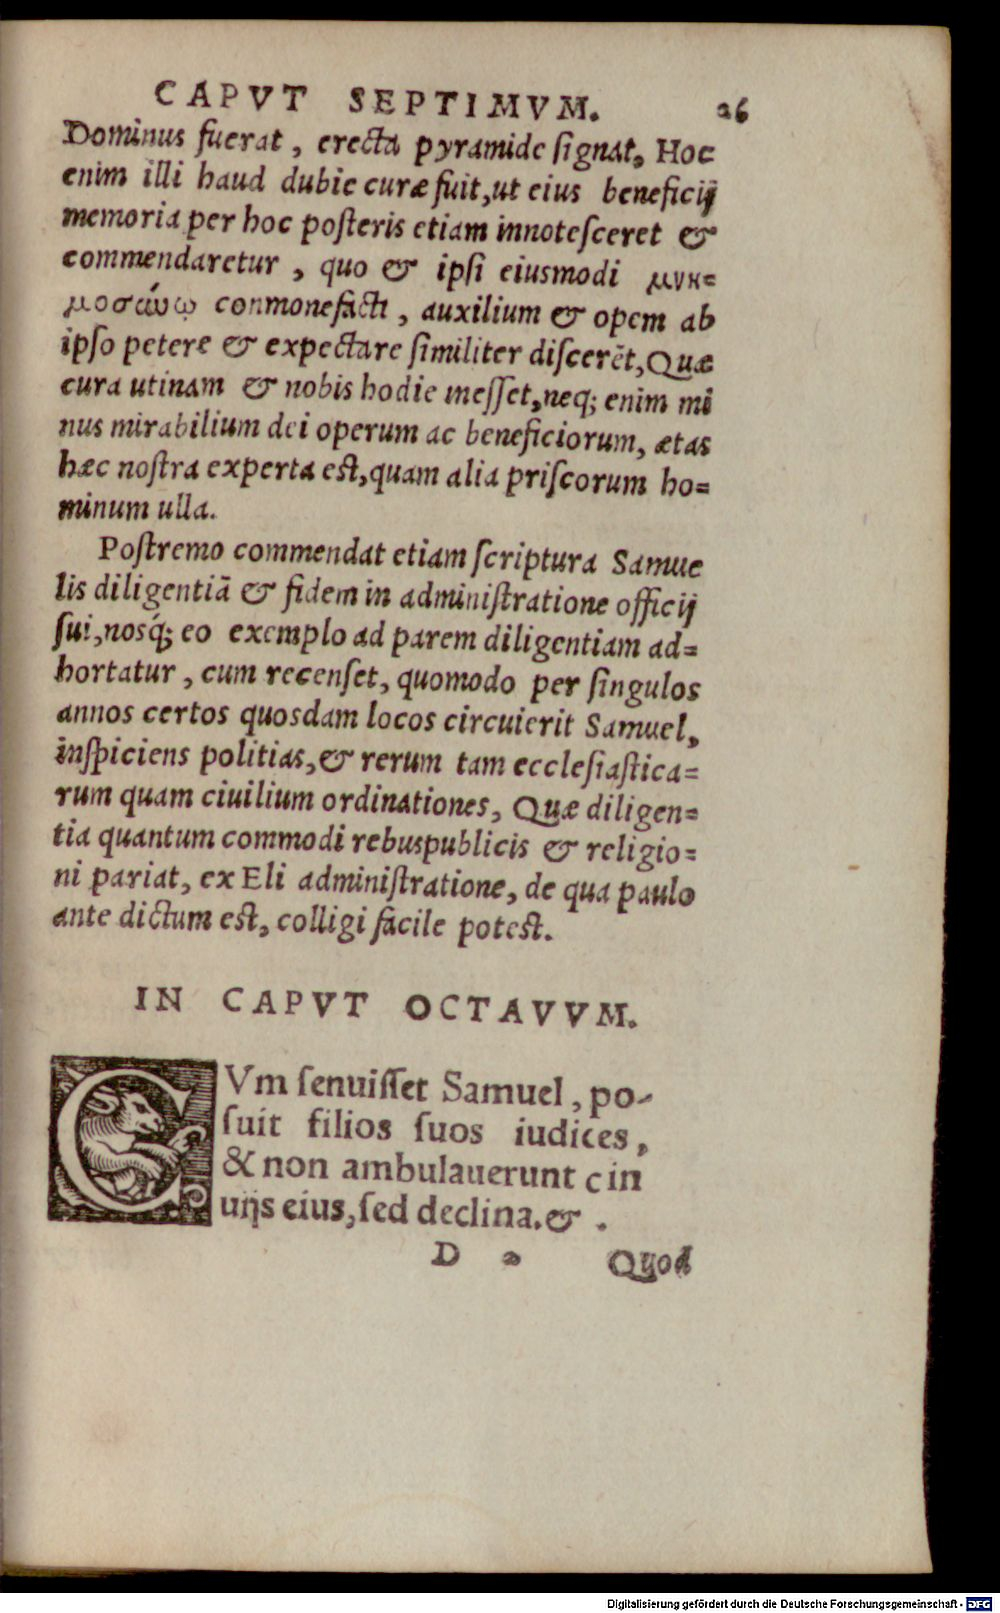 CAPVT SEPTIMVM. 26
Dominus fuerat, erecta pyramide ſignat. Hoc
enim illi haud dubie curæ fuit, ut eius beneficij
memoria per hoc poſteris etiam innoteſceret &
commendaretur, quo & ipſi eiusmodi μνη=
μοσύνῳ commonefacti, auxilium & opem ab
ipſo petere & expectare ſimiliter diſcerēt, Quæ
cura utinam & nobis hodie ineſſet, neq; enim mi
nus mirabilium dei operum ac beneficiorum, ætas
hæc noſtra experta eſt, quam alia priſcorum ho=
minum ulla.
Poſtremo commendat etiam ſcriptura Samue
lis diligentiā & fidem in adminiſtratione officij
ſui, nosq́; eo exemplo ad parem diligentiam ad=
hortatur, cum recenſet, quomodo per ſingulos
annos certos quosdam locos circuierit Samuel,
inſpiciens politias, & rerum tam eccleſiaſtica=
rum quam ciuilium ordinationes, Quæ diligen=
tia quantum commodi rebuspublicis & religio=
ni pariat, ex Eli adminiſtratione, de qua paulo
ante dictum eſt, colligi facile poteſt.
IN CAPVT OCTAVVM.
CVm ſenuiſſet Samuel, po-
ſuit filios ſuos iudices,
& non ambulauerunt in
uijs eius, ſed declina. &.
D 2 Quod
Digitalisierung gefördert durch die Deutsche Forschungsgemeinschaft - DFG